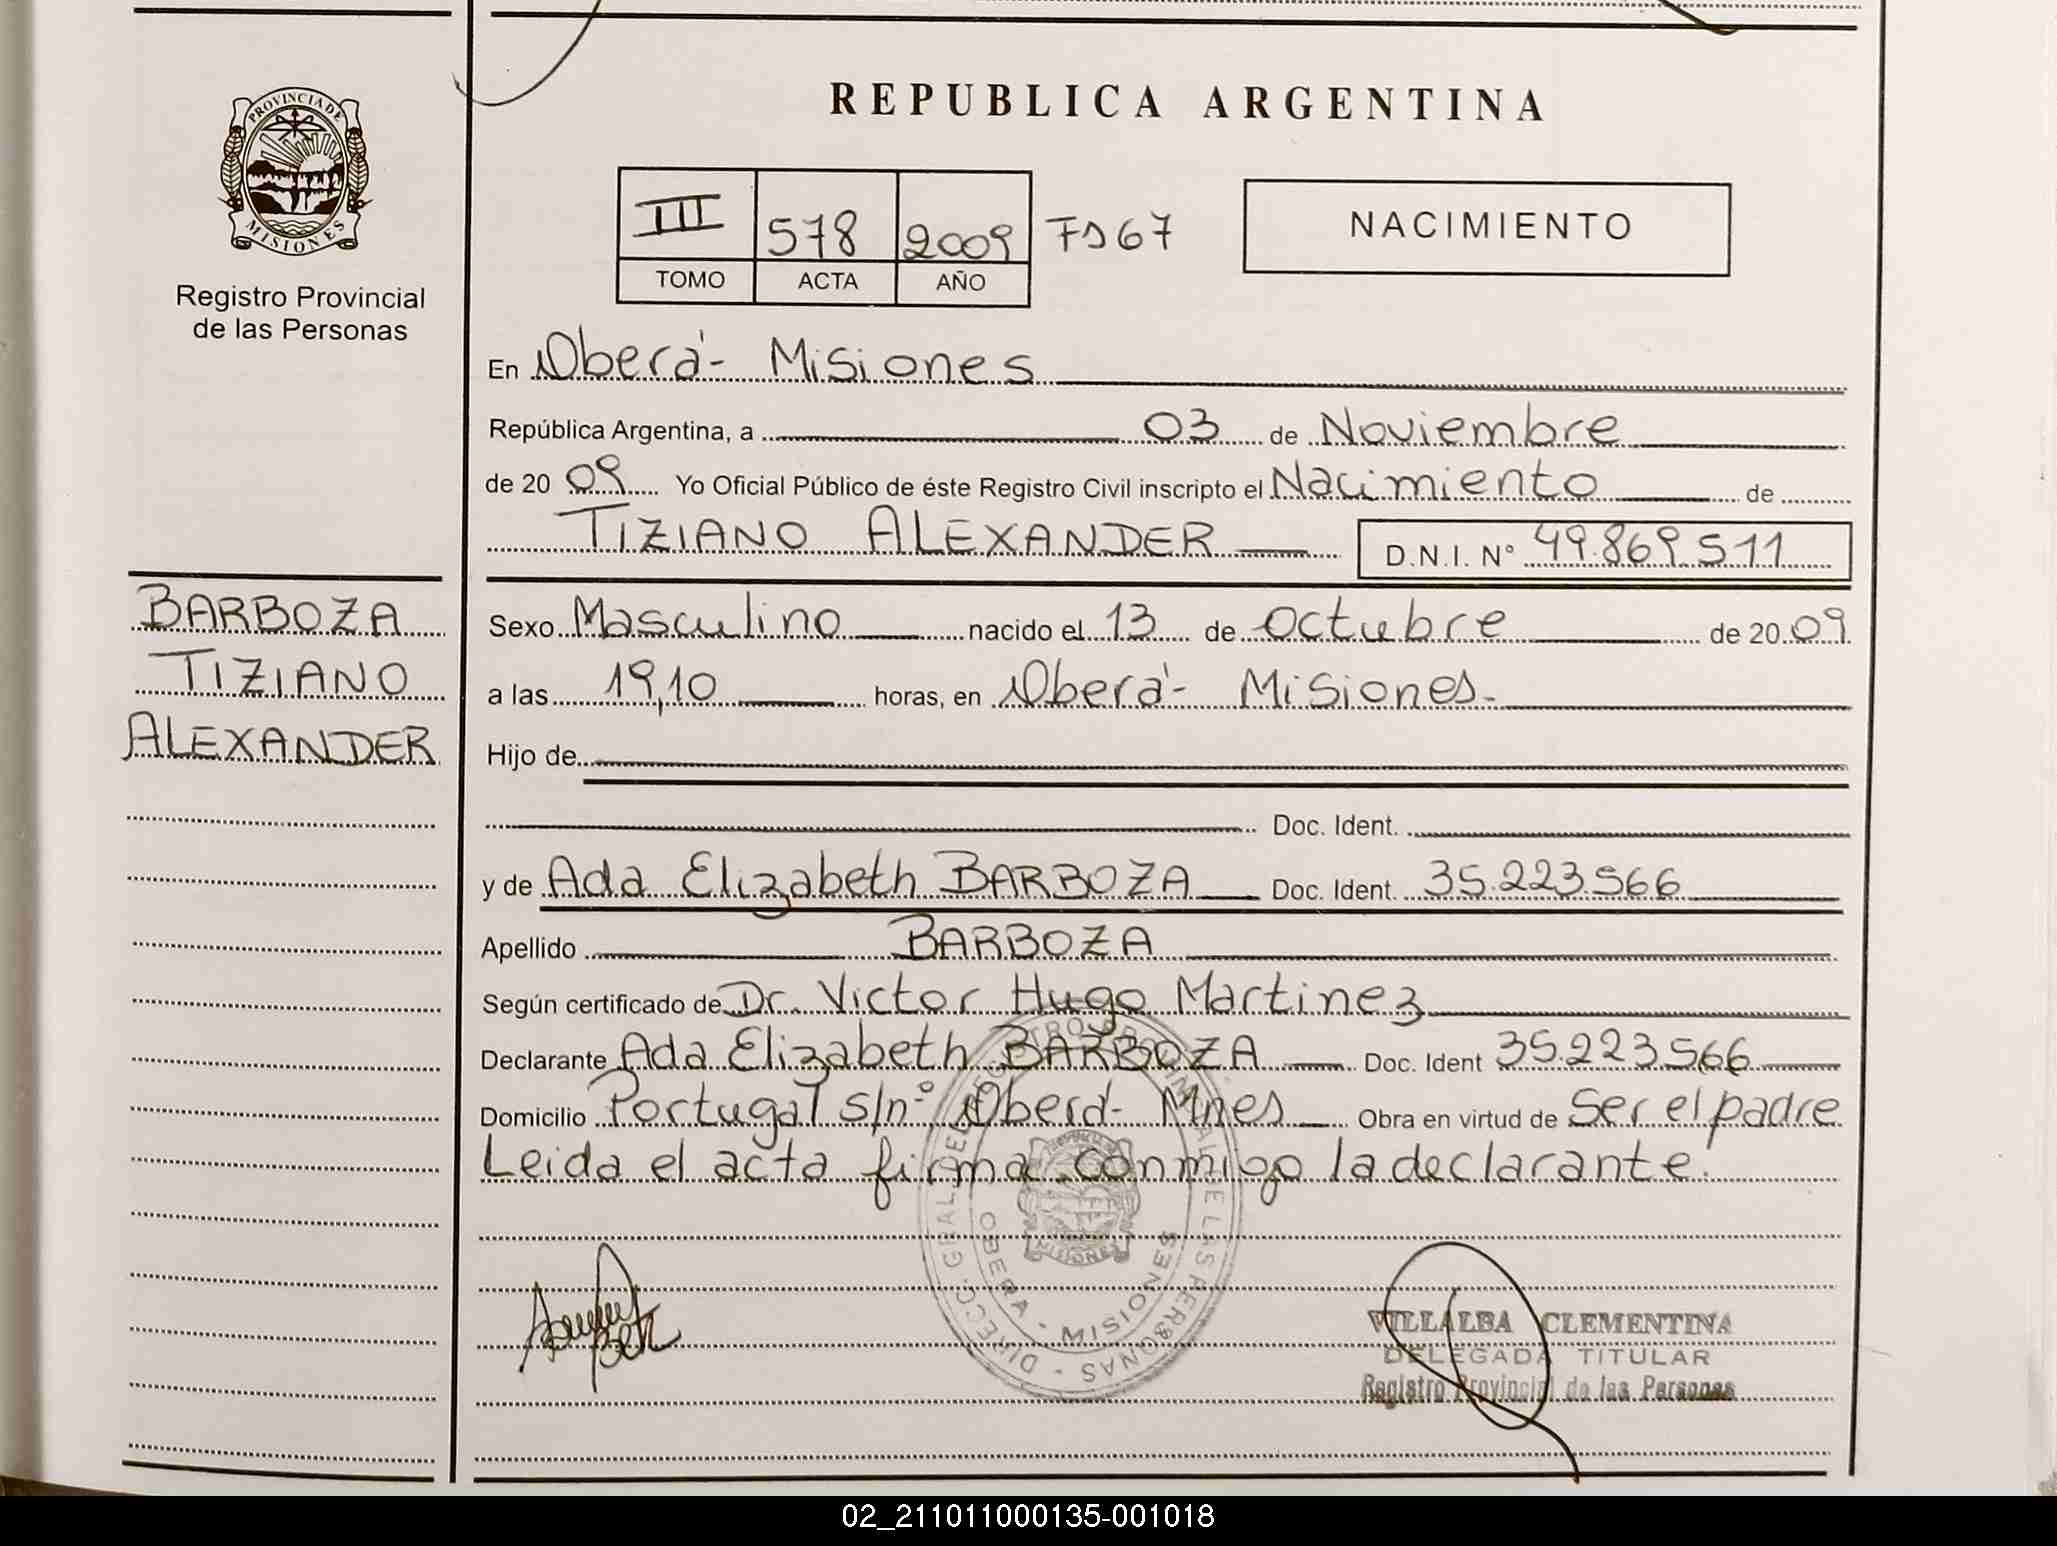 REPUBLICA ARGENTINA
PROVINCIA DE MISIONES
Registro Provincial
de las Personas
III 578 2009 Fº 67
TOMO ACTA AÑO
NACIMIENTO
En Oberá - Misiones
República Argentina, a 03 de Noviembre
de 20 09 Yo Oficial Público de éste Registro Civil inscripto el Nacimiento de
TIZIANO ALEXANDER D.N.I. N° 49.869.511
BARBOZA
TIZIANO
ALEXANDER
Sexo Masculino nacido el 13 de Octubre de 20 09
a las 19,10 horas, en Oberá - Misiones.
Hijo de
Doc. Ident.
y de Ada Elizabeth BARBOZA Doc. Ident. 35.223.566
Apellido BARBOZA
Según certificado de Dr. Victor Hugo Martinez
Declarante Ada Elizabeth BARBOZA Doc. Ident 35.223.566
Domicilio Portugal s/nº Oberá - Mnes Obra en virtud de Ser el padre
Leida el acta firma conmigo la declarante.
OBERA - MISIONES
VILLALBA CLEMENTINA
DELEGADA TITULAR
Registro Provincial de las Personas
02_211011000135-001018